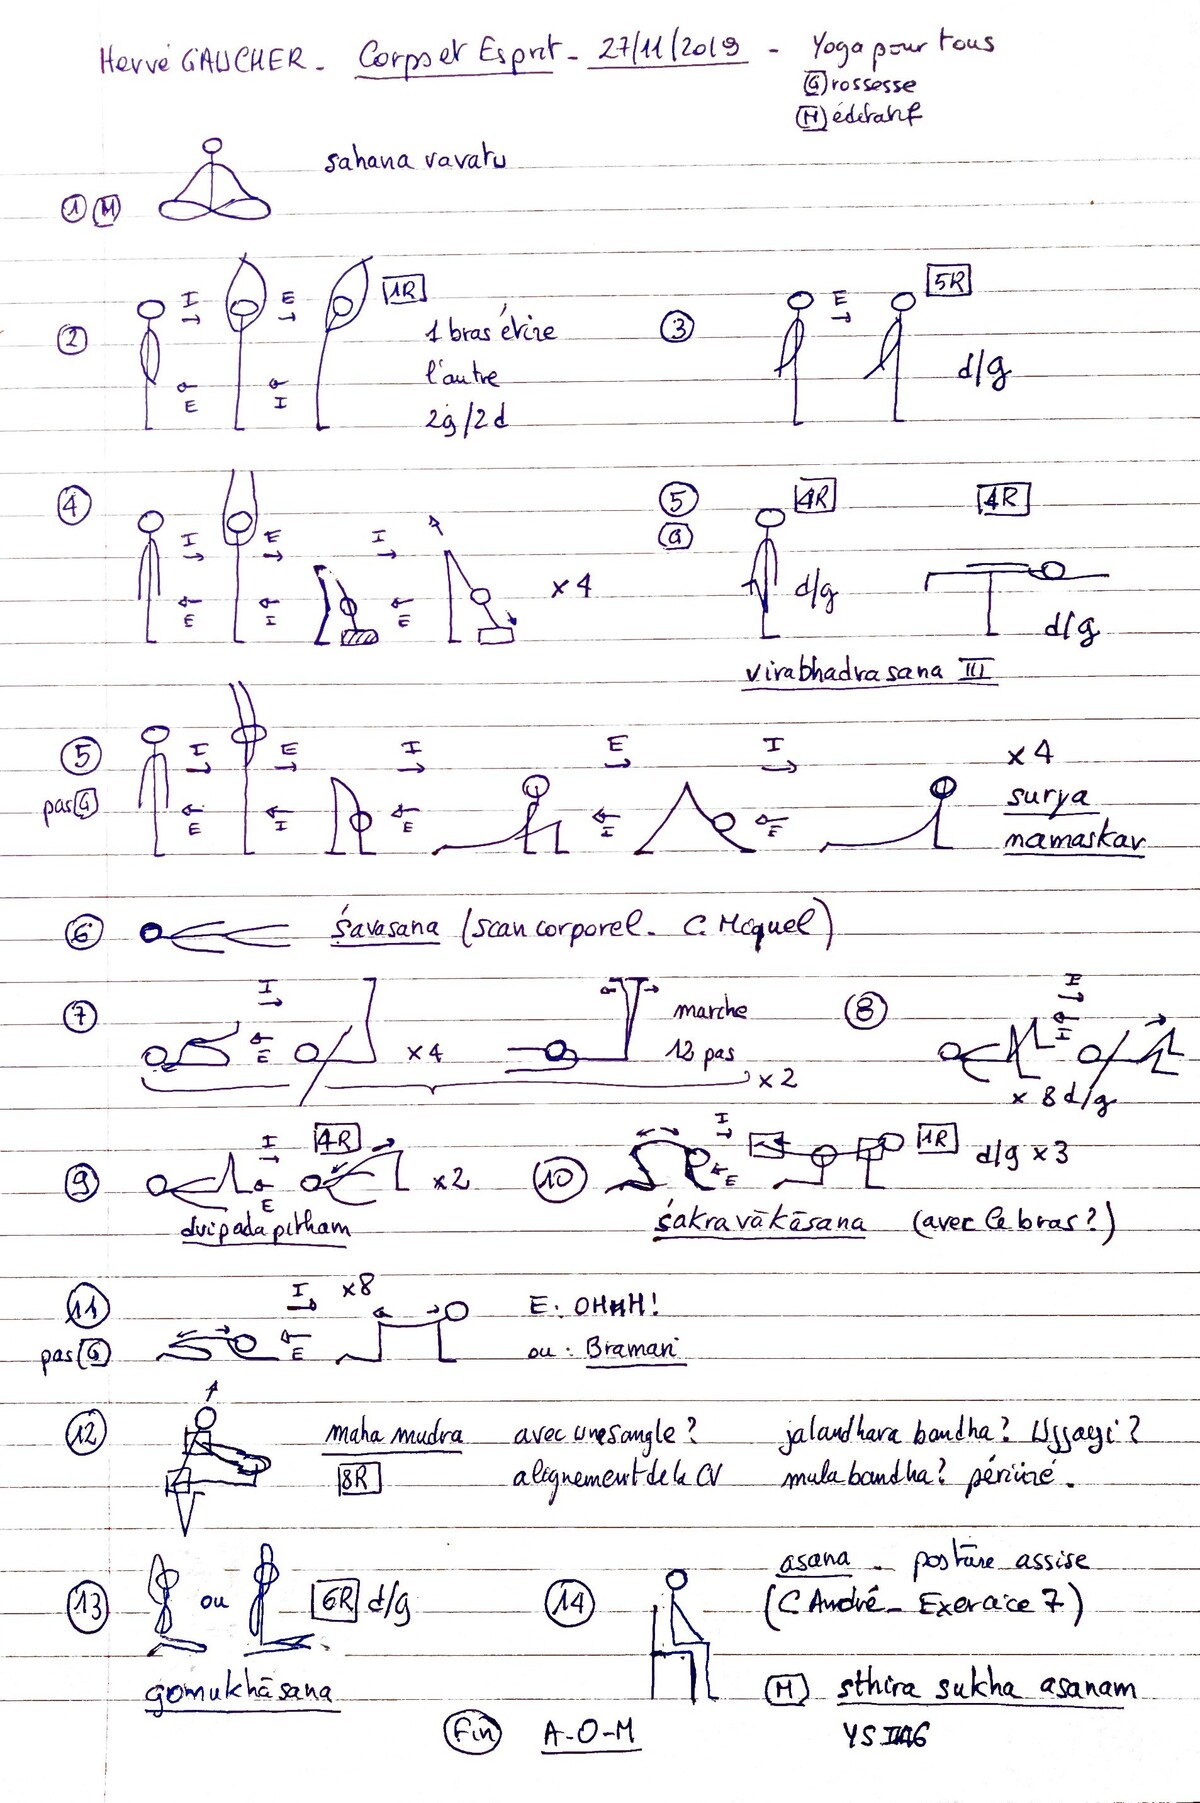 Hervé GAUCHER - Corps et Esprit - 27/11/2019 - Yoga pour tous
G rossesse
M éditatif
sahana vavatu
1 M
2 I E 1R
E I
1 bras étire
l'autre
2g/2d
3 E 5R
d/g
4 I E I
E I E
x 4
5 4R 4R
G
d/g d/g
virabhadrasana III
5 I E I E I
pas G E I E I E
x 4
surya
namaskar
6 śavasana (scan corporel -
7 I
E
x 4
marche
12 pas
x 2
8 E
I
x 8 d/g
9 I 4R
E
x 2
dvipadapitham
10 I
E
1R d/g x 3
śakravākāsana (avec le bras ?)
11 I x8
pas G E
E :
ou : Bramari
12 maha mudra avec une sangle ? jalandhara bandha ? Ujjayi ?
8R alignement de la CV mula bandha ? périnée.
13 ou 6R d/g
gomukhāsana
14 asana - posture assise
(C André - Exercice 7)
M sthira sukha asanam
YS II
Fin A-O-M